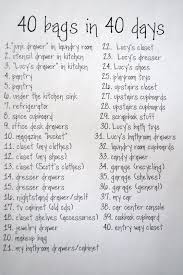 40 bags in 40 days
1. "junk drawer" in laundry room
2. utensil drawer in kitchen
3. "Lucy's drawer" in kitchen
4. pantry
5. under the kitchen sink
7. refrigerator
8. spice cupboard
9. office desk drawers
10. magazine "bucket"
11. closet (my clothes)
12. closet (my clothes)
13. closet (Scott's clothes)
14. dresser drawers
15. dresser drawers
16. nightstand drawer/shelf
17. tv cabinet (cd's and dvds)
18. closet shelves (accessories)
19. jewelry drawer
20. makeup bag
21. my bathroom drawers/cabinet
22. Lucy's closet
23. Lucy's dresser
24. Lucy's shoes
25. playroom toys
26. upstairs closet
27. upstairs cupboards
28. upstairs cupboards
29. bathroom cupboards
30. Lucy's bath toys
31. laundry room cupboards
32. cleaning cabinet
33. card drawer
34. garage (recycling)
35. garage (recycling)
36. garage (general)
37. my car
38. car center console
39. cookbook cupboard
40. entry way closet